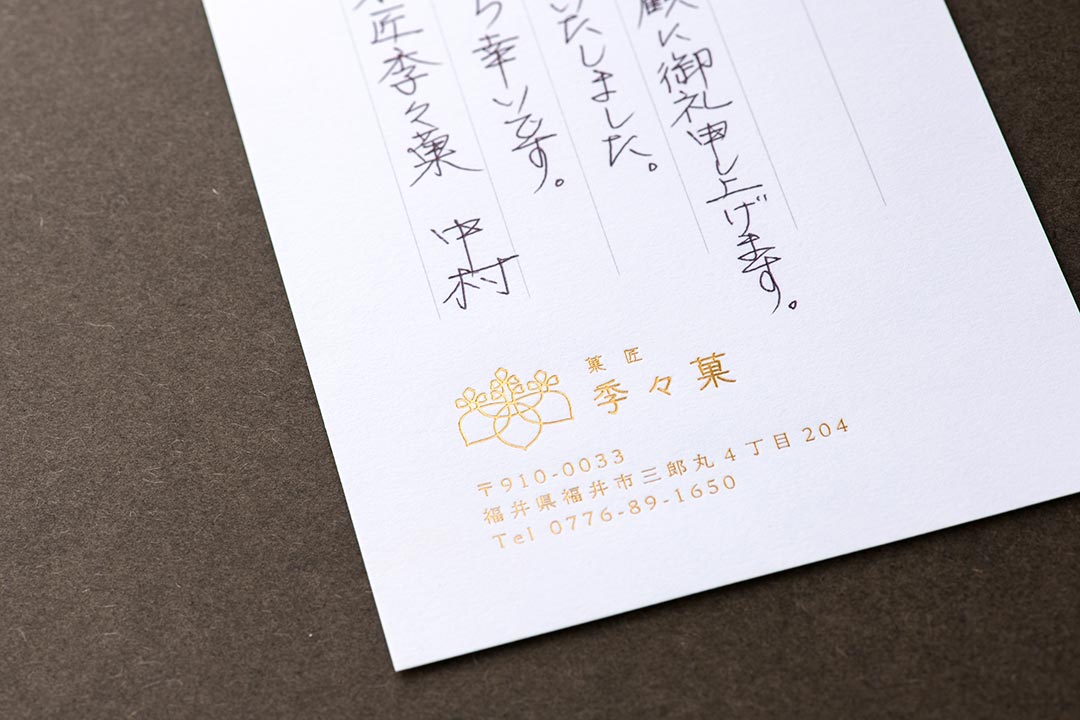 顧に御礼申し上げます。
いたしました。
ら幸いです。
匠季々菓 中村
菓匠
季々菓
〒910-0033
福井県福井市三郎丸4丁目204
Tel 0776-89-1650